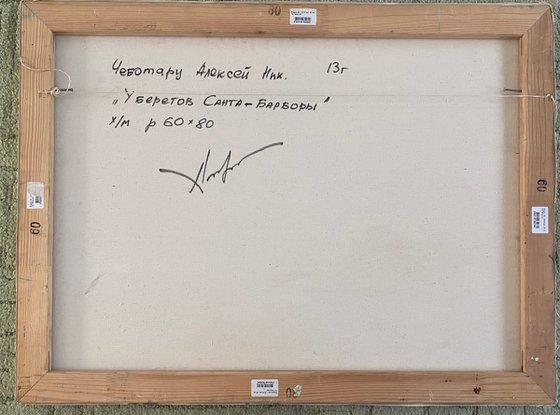 80
Чеботару Алексей Ник. 13г
„Уберегов Санта-Барборы"
х/м р 60×80
60
60
80